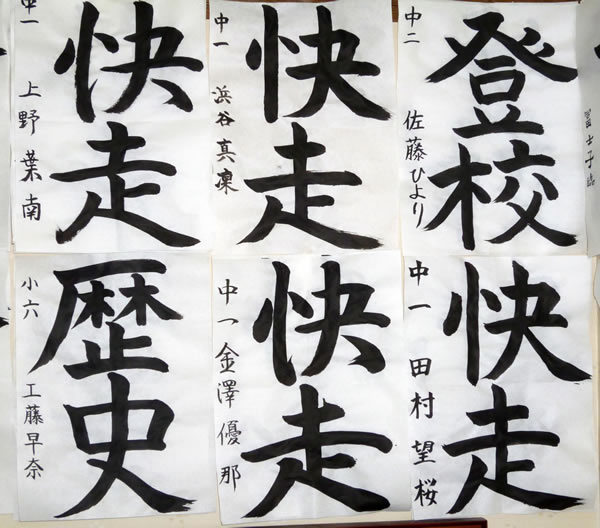 快走
中一 上野葉南
快走
中一 浜谷真凍
登校
中二 佐藤ひより
歴史
小六 工藤早奈
快走
中一 金澤優那
快走
中一 田村望桜